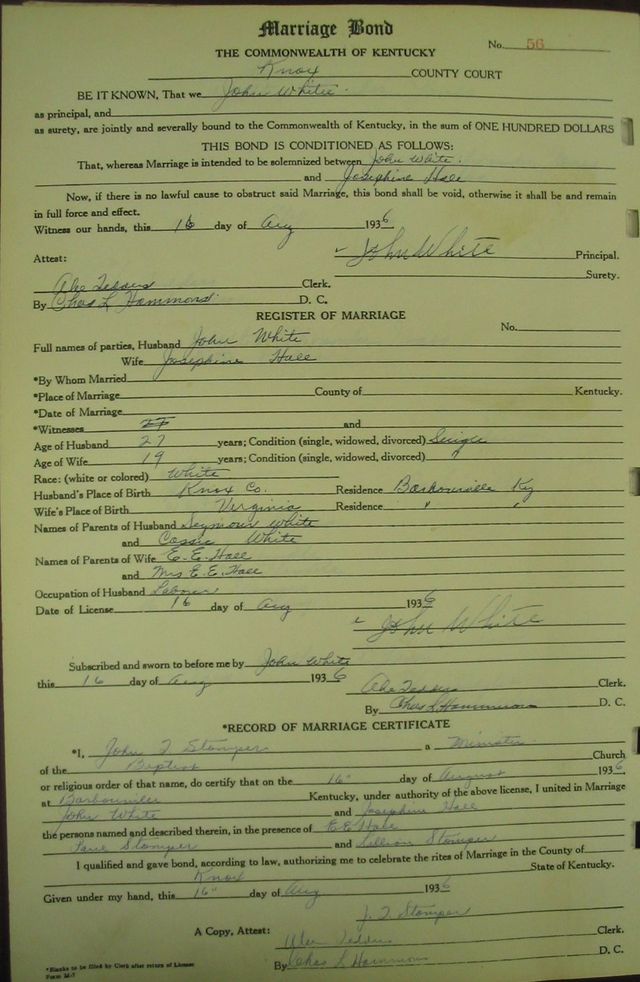 Marriage Bond
No. 56
THE COMMONWEALTH OF KENTUCKY
Knox COUNTY COURT
BE IT KNOWN, That we John White
as principal, and
as surety, are jointly and severally bound to the Commonwealth of Kentucky, in the sum of ONE HUNDRED DOLLARS
THIS BOND IS CONDITIONED AS FOLLOWS:
That, whereas Marriage is intended to be solemnized between John White.
and Josephine Hall
Now, if there is no lawful cause to obstruct said Marriage, this bond shall be void, otherwise it shall be and remain
in full force and effect.
Witness our hands, this 16 day of Aug 1936
John White Principal.
Attest: Surety.
Clerk.
By Chas L Hammond. D. C.
REGISTER OF MARRIAGE
No.
Full names of parties, Husband John White
Wife Josephine Hall
*By Whom Married
*Place of Marriage County of Kentucky.
*Date of Marriage
*Witnesses and
Age of Husband 27 years; Condition (single, widowed, divorced) Single
Age of Wife 19 years; Condition (single, widowed, divorced) "
Race: (white or colored) White
Husband's Place of Birth Knox Co. Residence Barbourville Ky
Wife's Place of Birth Virginia Residence " "
Names of Parents of Husband Seymour White
and Cassie White
Names of Parents of Wife E. E. Hall
and Mrs E. E. Hall
Occupation of Husband Labour
Date of License 16 day of Aug 1936
John White
Subscribed and sworn to before me by John White
this 16 day of Aug 1936
Clerk.
By Chas L Hammond D. C.
*RECORD OF MARRIAGE CERTIFICATE
*I, John T Stamper a Minister
of the Baptist Church
or religious order of that name, do certify that on the 16" day of August 1936
at Barbourville Kentucky, under authority of the above license, I united in Marriage
John White and Josephine Hall
the persons named and described therein, in the presence of E E Hall
Stamper and Lillian Stamper
I qualified and gave bond, according to law, authorizing me to celebrate the rites of Marriage in the County of
Knox State of Kentucky.
Given under my hand, this 16" day of Aug 1936
J. T Stamper
A Copy, Attest: Clerk.
By Chas L Hammond D. C.
*Blanks to be filled by Clerk after return of License
Form M-7